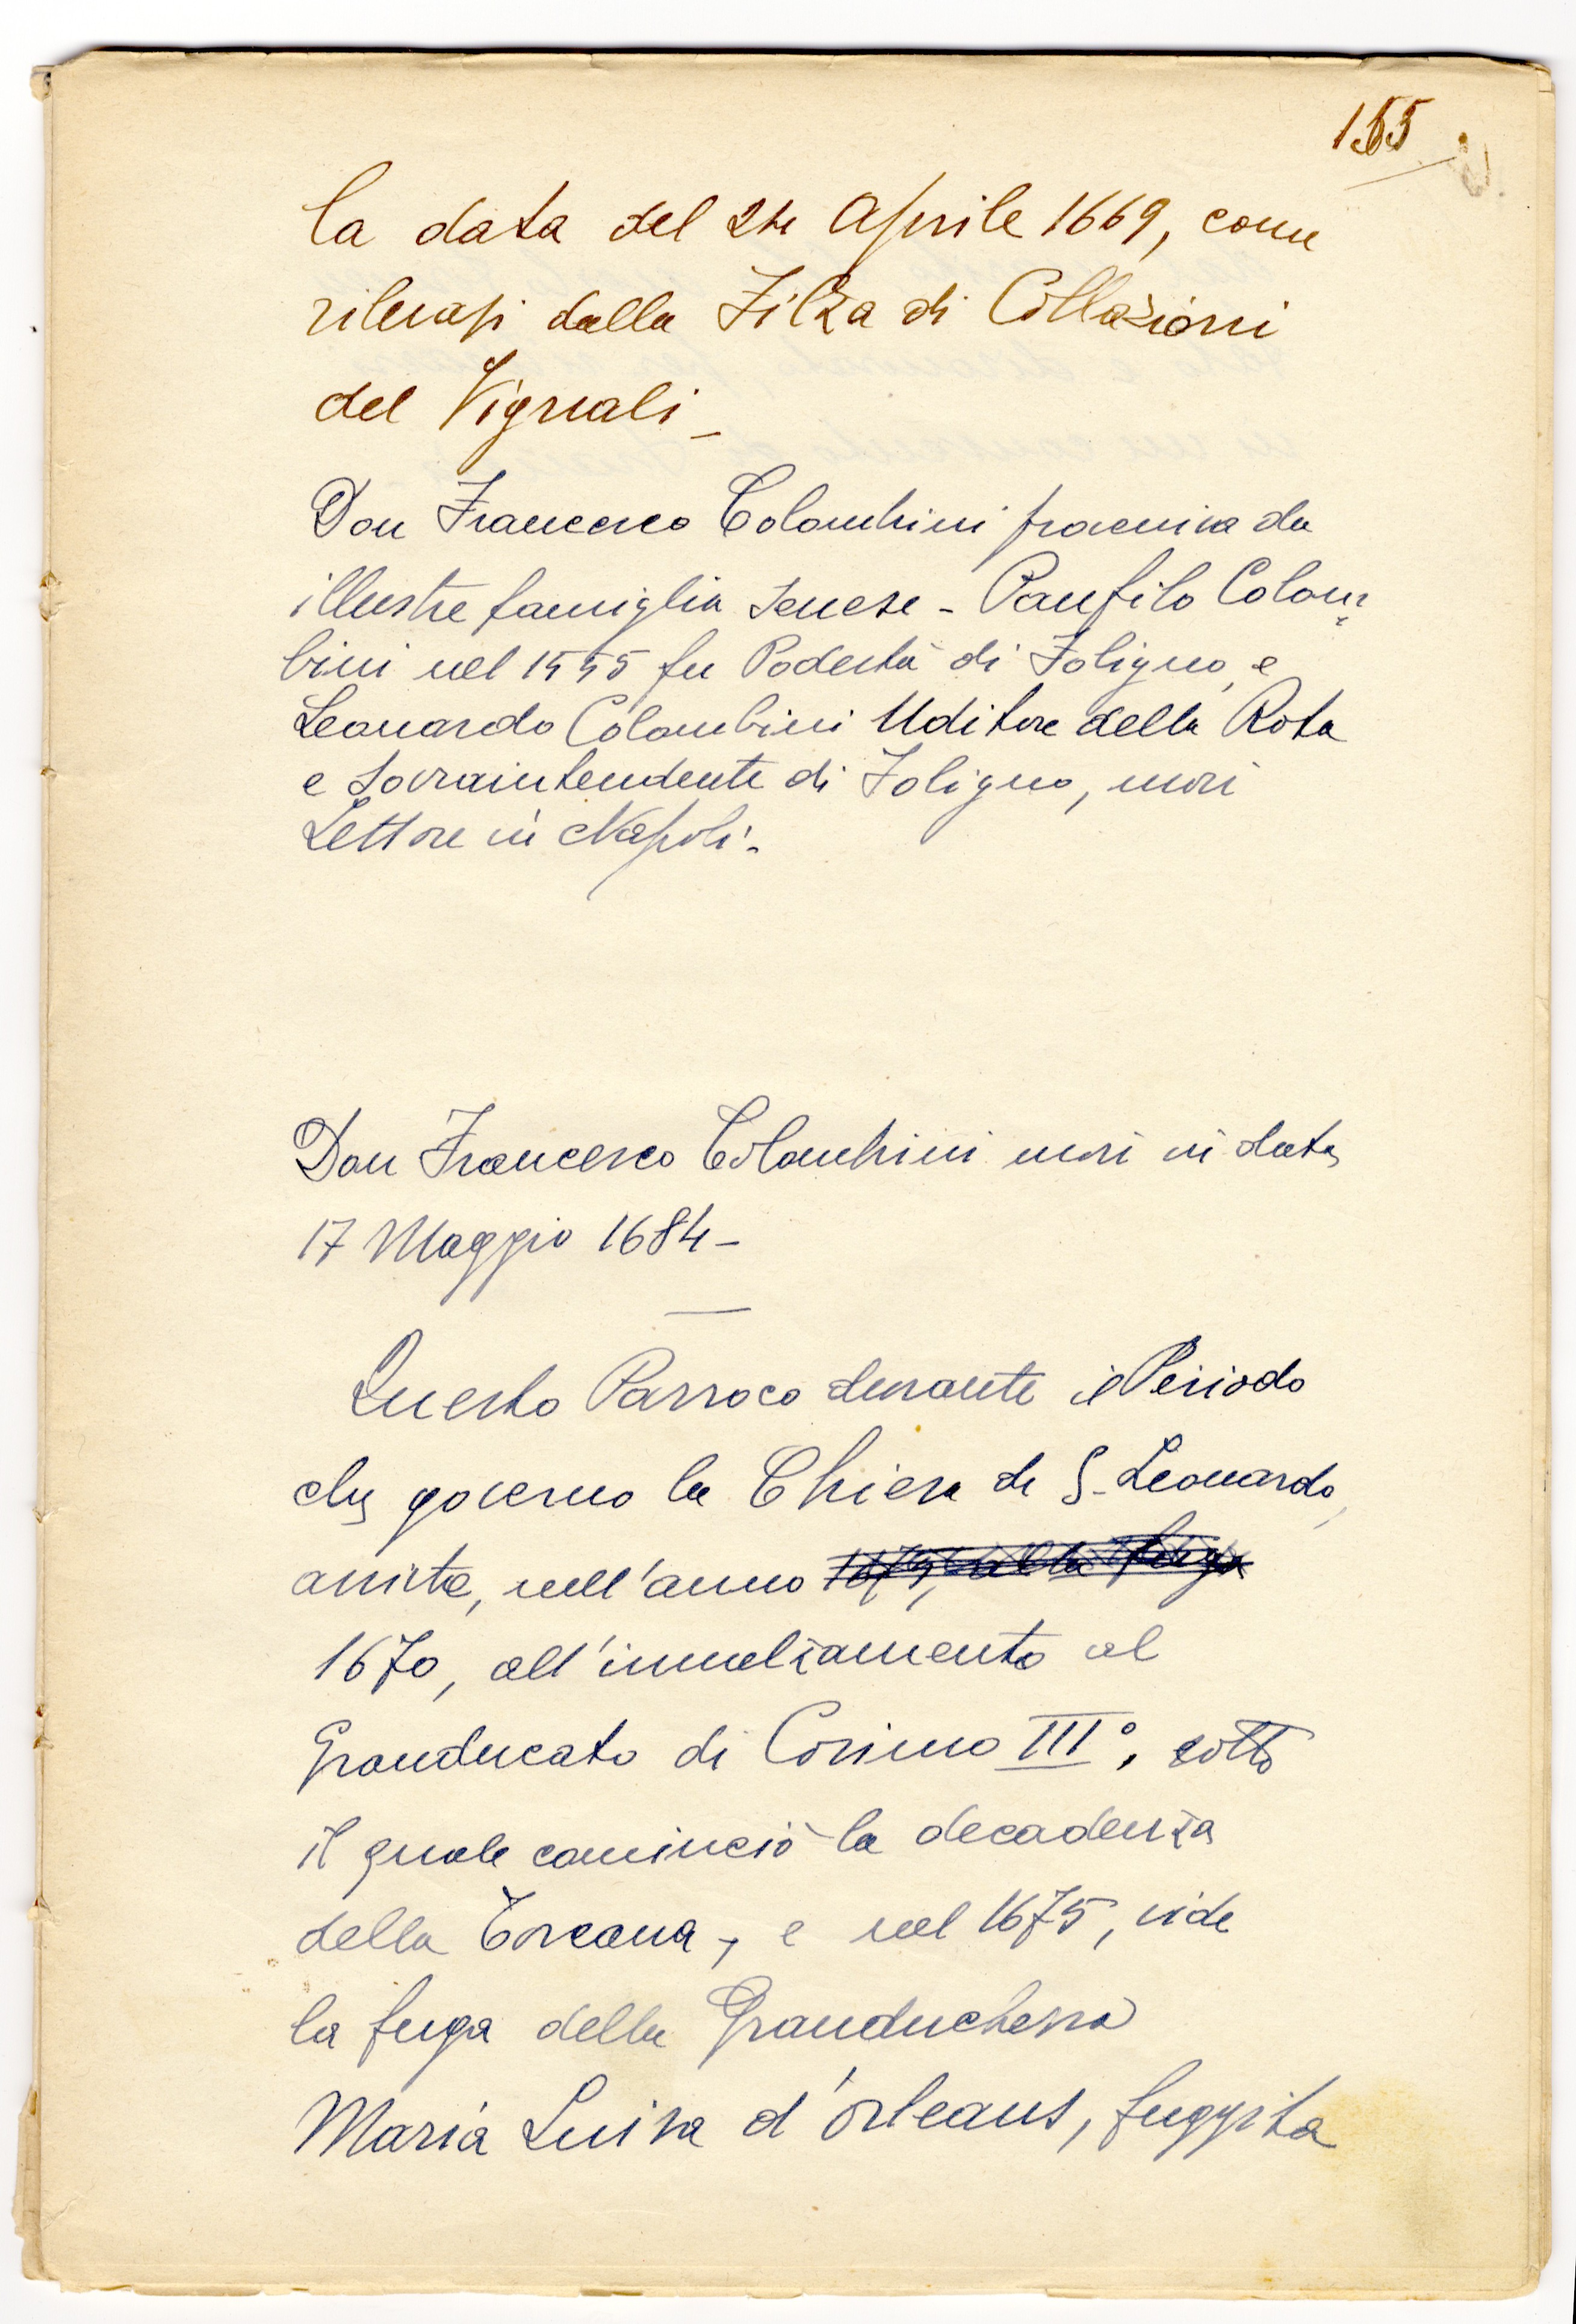 155
la data del 24 Aprile 1669, come
rilevasi dalla Filza di Collazioni
del Vignali -
Don Francesco Colombini proveniva da
illustre famiglia senese - Panfilo Colom=
bini nel 1555 fu Podestà di Foligno, e
Leonardo Colombini Uditore della Rota
e Sovraintendente di Foligno, morì
Lettore in Napoli -
Don Francesco Colombini morì in data
17 Maggio 1684 -
Questo Parroco durante il Periodo
che governò la Chiesa di S. Leonardo,
assistè, nell'anno 1675, alla fuga
1670, all'innalzamento al
Granducato di Cosimo III°, sotto
il quale cominciò la decadenza
della Toscana, e nel 1675, vide
la fuga della Granduchessa
Maria Luisa d'Orleans, fuggita